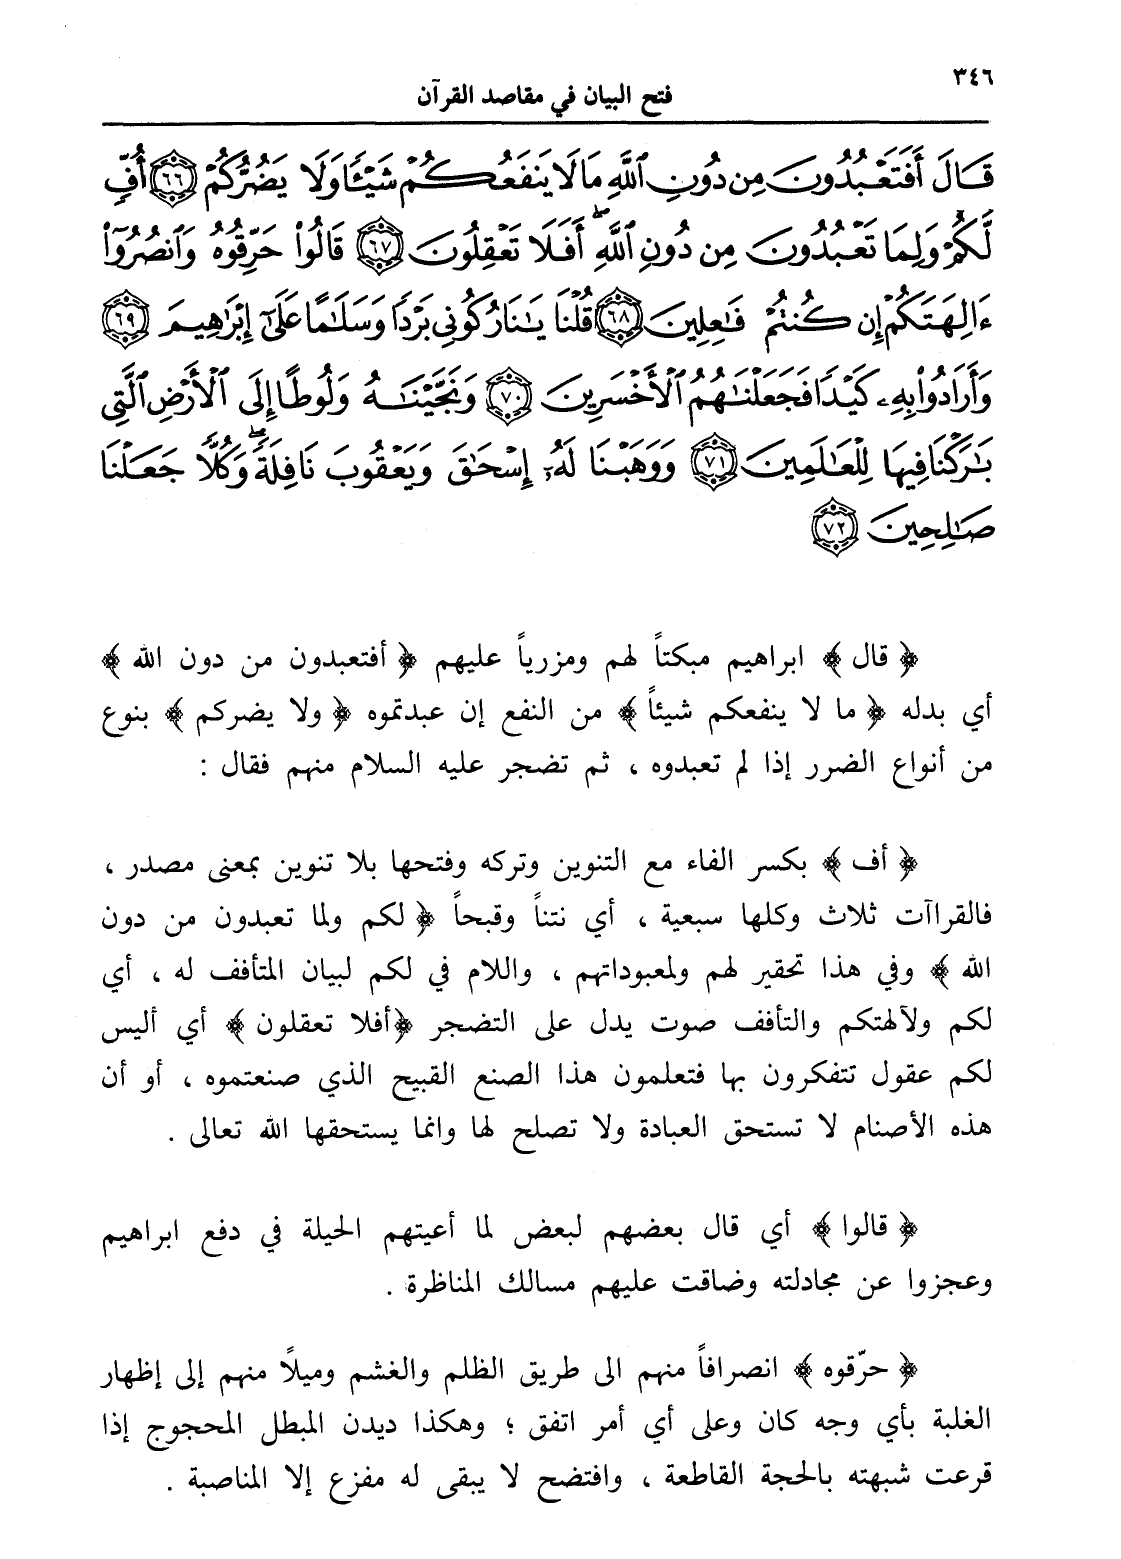 ٣٤٦
فتح البيان في مقاصد القرآن
قَالَ أَفَتَعْبُدُونَ مِن دُونِ ٱللَّهِ مَا لَا يَنفَعُكُمْ شَيْـًٔا وَلَا يَضُرُّكُمْ ﴿٦٦﴾ أُفٍّ
لَّكُمْ وَلِمَا تَعْبُدُونَ مِن دُونِ ٱللَّهِ ۖ أَفَلَا تَعْقِلُونَ ﴿٦٧﴾ قَالُوا۟ حَرِّقُوهُ وَٱنصُرُوٓا۟
ءَالِهَتَكُمْ إِن كُنتُمْ فَـٰعِلِينَ ﴿٦٨﴾ قُلْنَا يَـٰنَارُ كُونِى بَرْدًا وَسَلَـٰمًا عَلَىٰٓ إِبْرَٰهِيمَ ﴿٦٩﴾
وَأَرَادُوا۟ بِهِۦ كَيْدًا فَجَعَلْنَـٰهُمُ ٱلْأَخْسَرِينَ ﴿٧٠﴾ وَنَجَّيْنَـٰهُ وَلُوطًا إِلَى ٱلْأَرْضِ ٱلَّتِى
بَـٰرَكْنَا فِيهَا لِلْعَـٰلَمِينَ ﴿٧١﴾ وَوَهَبْنَا لَهُۥٓ إِسْحَـٰقَ وَيَعْقُوبَ نَافِلَةً ۖ وَكُلًّا جَعَلْنَا
صَـٰلِحِينَ ﴿٧٢﴾
﴿ قال ﴾ ابراهيم مبكتاً لهم ومزرياً عليهم ﴿ أفتعبدون من دون الله ﴾
أي بدله ﴿ ما لا ينفعكم شيئاً ﴾ من النفع إن عبدتموه ﴿ ولا يضركم ﴾ بنوع
من أنواع الضرر إذا لم تعبدوه ، ثم تضجر عليه السلام منهم فقال :
﴿ أف ﴾ بكسر الفاء مع التنوين وتركه وفتحها بلا تنوين بمعنى مصدر ،
فالقراآت ثلاث وكلها سبعية ، أي نتناً وقبحاً ﴿ لكم ولما تعبدون من دون
الله ﴾ وفي هذا تحقير لهم ولمعبوداتهم ، واللام في لكم لبيان المتأفف له ، أي
لكم ولآلهتكم والتأفف صوت يدل على التضجر ﴿أفلا تعقلون ﴾ أي أليس
لكم عقول تتفكرون بها فتعلمون هذا الصنع القبيح الذي صنعتموه ، أو أن
هذه الأصنام لا تستحق العبادة ولا تصلح لها وانما يستحقها الله تعالى .
﴿ قالوا ﴾ أي قال بعضهم لبعض لما أعيتهم الحيلة في دفع ابراهيم
وعجزوا عن مجادلته وضاقت عليهم مسالك المناظرة .
﴿ حرّقوه ﴾ انصرافاً منهم الى طريق الظلم والغشم وميلاً منهم إلى إظهار
الغلبة بأي وجه كان وعلى أي أمر اتفق ؛ وهكذا ديدن المبطل المحجوج إذا
قرعت شبهته بالحجة القاطعة ، وافتضح لا يبقى له مفزع إلا المناصبة .